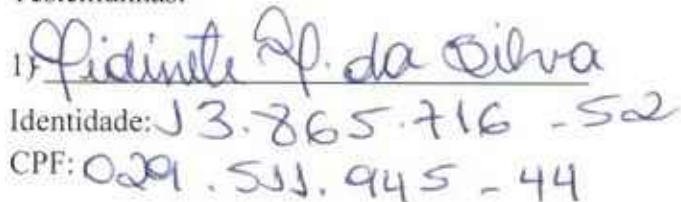 Testemunhas:
1) Lidinete P. da Silva
Identidade: 13.865.716 - 52
CPF: 029.511.945 - 44